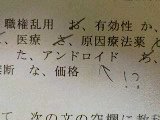 職権乱用 お、有効性 か、
、医療 き、原因療法薬
た、アンドロイド ち、
断 な、価格
!?
て 次の文の空欄に